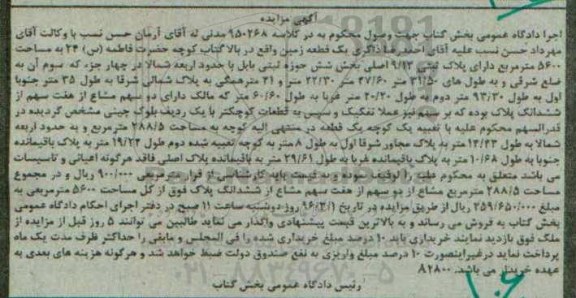 آگهی مزایده
اجرا دادگاه عمومی بخش گتاب جهت وصول محکوم به در کلاسه ۹۵۰۲۶۸ مدنی له آقای آرمان حسن نسب با وکالت آقای
مهرداد حسن نسب علیه آقای احمدرضا ذاکری یک قطعه زمین واقع در بالا گتاب کوچه حضرت فاطمه (س) ۲۴ به مساحت
۵۶۰۰ مترمربع دارای پلاک ثبتی ۹/۱۲ اصلی بخش شش حوزه ثبتی بابل با حدود اربعه شمالا در چهار جزء که سوم آن به
ضلع شرقی و به طول های ۳۱/۵۰ متر ۴۷/۶۰ متر ۲۲/۳۰ متر و ۲۱ مترهمگی به پلاک شمالی شرقا به طول ۳۵ متر جنوبا
اول به طول ۹۳/۳۰ متر دوم به طول ۲۰/۲۰ متر غربا به طول ۶۰/۶۰ متر که مالک دارای دو سهم مشاع از هفت سهم از
ششدانگ پلاک بوده که بر حکم نیز عملا تفکیک و سپس به قطعات کوچکتر با یک ردیف بلوک چینی مشخص گردیده در
قدرالسهم محکوم علیه با تعبیه یک کوچه یک قطعه در منتهی الیه کوچه به مساحت ۲۸۸/۵ مترمربع و به حدود اربعه
شمالا به طول ۱۴/۲۳ متر به پلاک مجاور شرقا اول به طول ۸ متر به کوچه تعبیه شده دوم طول ۱۹/۲۳ متر به پلاک باقیمانده
جنوبا به طول ۱۰/۶۸ متر به پلاک باقیمانده غربا به طول ۲۹/۶۱ متر به باقیمانده پلاک اصلی فاقد هرگونه اعیانی و تاسیسات
می باشد متعلق به محکوم علیه را توقیف نموده و به قیمت پایه کارشناسی از قرار مترمربعی ۹۰۰/۰۰۰ ریال و در مجموع
مساحت ۲۸۸/۵ مترمربع مشاع از دو سهم از هفت سهم مشاع از ششدانگ پلاک فوق از کل مساحت ۵۶۰۰ مترمربعی به
مبلغ ۲۵۹/۶۵۰/۰۰۰ ریال از طریق مزایده در تاریخ ۹۶/۳/۱ روز دوشنبه ساعت ۱۱ صبح در دفتر اجرای احکام دادگاه عمومی
بخش گتاب به فروش می رساند و به بالاترین قیمت پیشنهادی واگذار می نماید طالبین می توانند ۵ روز قبل از مزایده از
ملک فوق بازدید نمایند خریداری باید ۱۰ درصد مبلغ خریداری شده را فی المجلس و مابقی را حداکثر ظرف مدت یک ماه
پرداخت نماید در غیر اینصورت ۱۰ درصد مبلغ واریزی به نفع صندوق دولت ضبط خواهد شد و هرگونه هزینه های بعدی به
عهده خریدار می باشد. ۸۲۸۰۰
رئیس دادگاه عمومی بخش گتاب